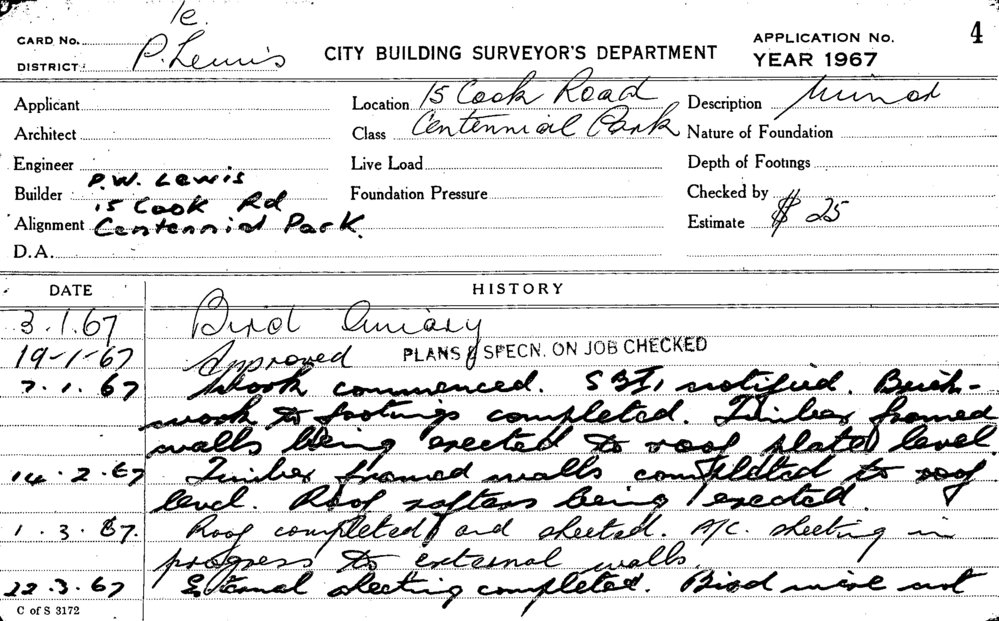 1e.
CARD No.
DISTRICT P. Lewis
CITY BUILDING SURVEYOR'S DEPARTMENT
APPLICATION No.
YEAR 1967
4
Applicant
Architect
Engineer
Builder P.W. Lewis
15 Cook Rd
Alignment Centennial Park.
D.A.
Location 15 Cook Road
Class Centennial Park
Live Load
Foundation Pressure
Description Minor
Nature of Foundation
Depth of Footings
Checked by
Estimate $ 25
DATE HISTORY
3.1.67 Bird Aviary
19-1-67 Approved PLANS & SPECN. ON JOB CHECKED
7.1.67 Work commenced. S.B.I. notified. Brick-
work to footings completed. Timber framed
walls being erected to roof plate level.
14.2.67 Timber framed walls completed to roof
level. Roof rafters being erected.
1.3.67. Roof completed and sheeted. A/C. sheeting in
progress to external walls.
22.3.67 External sheeting completed. Bird wire not
C of S 3172